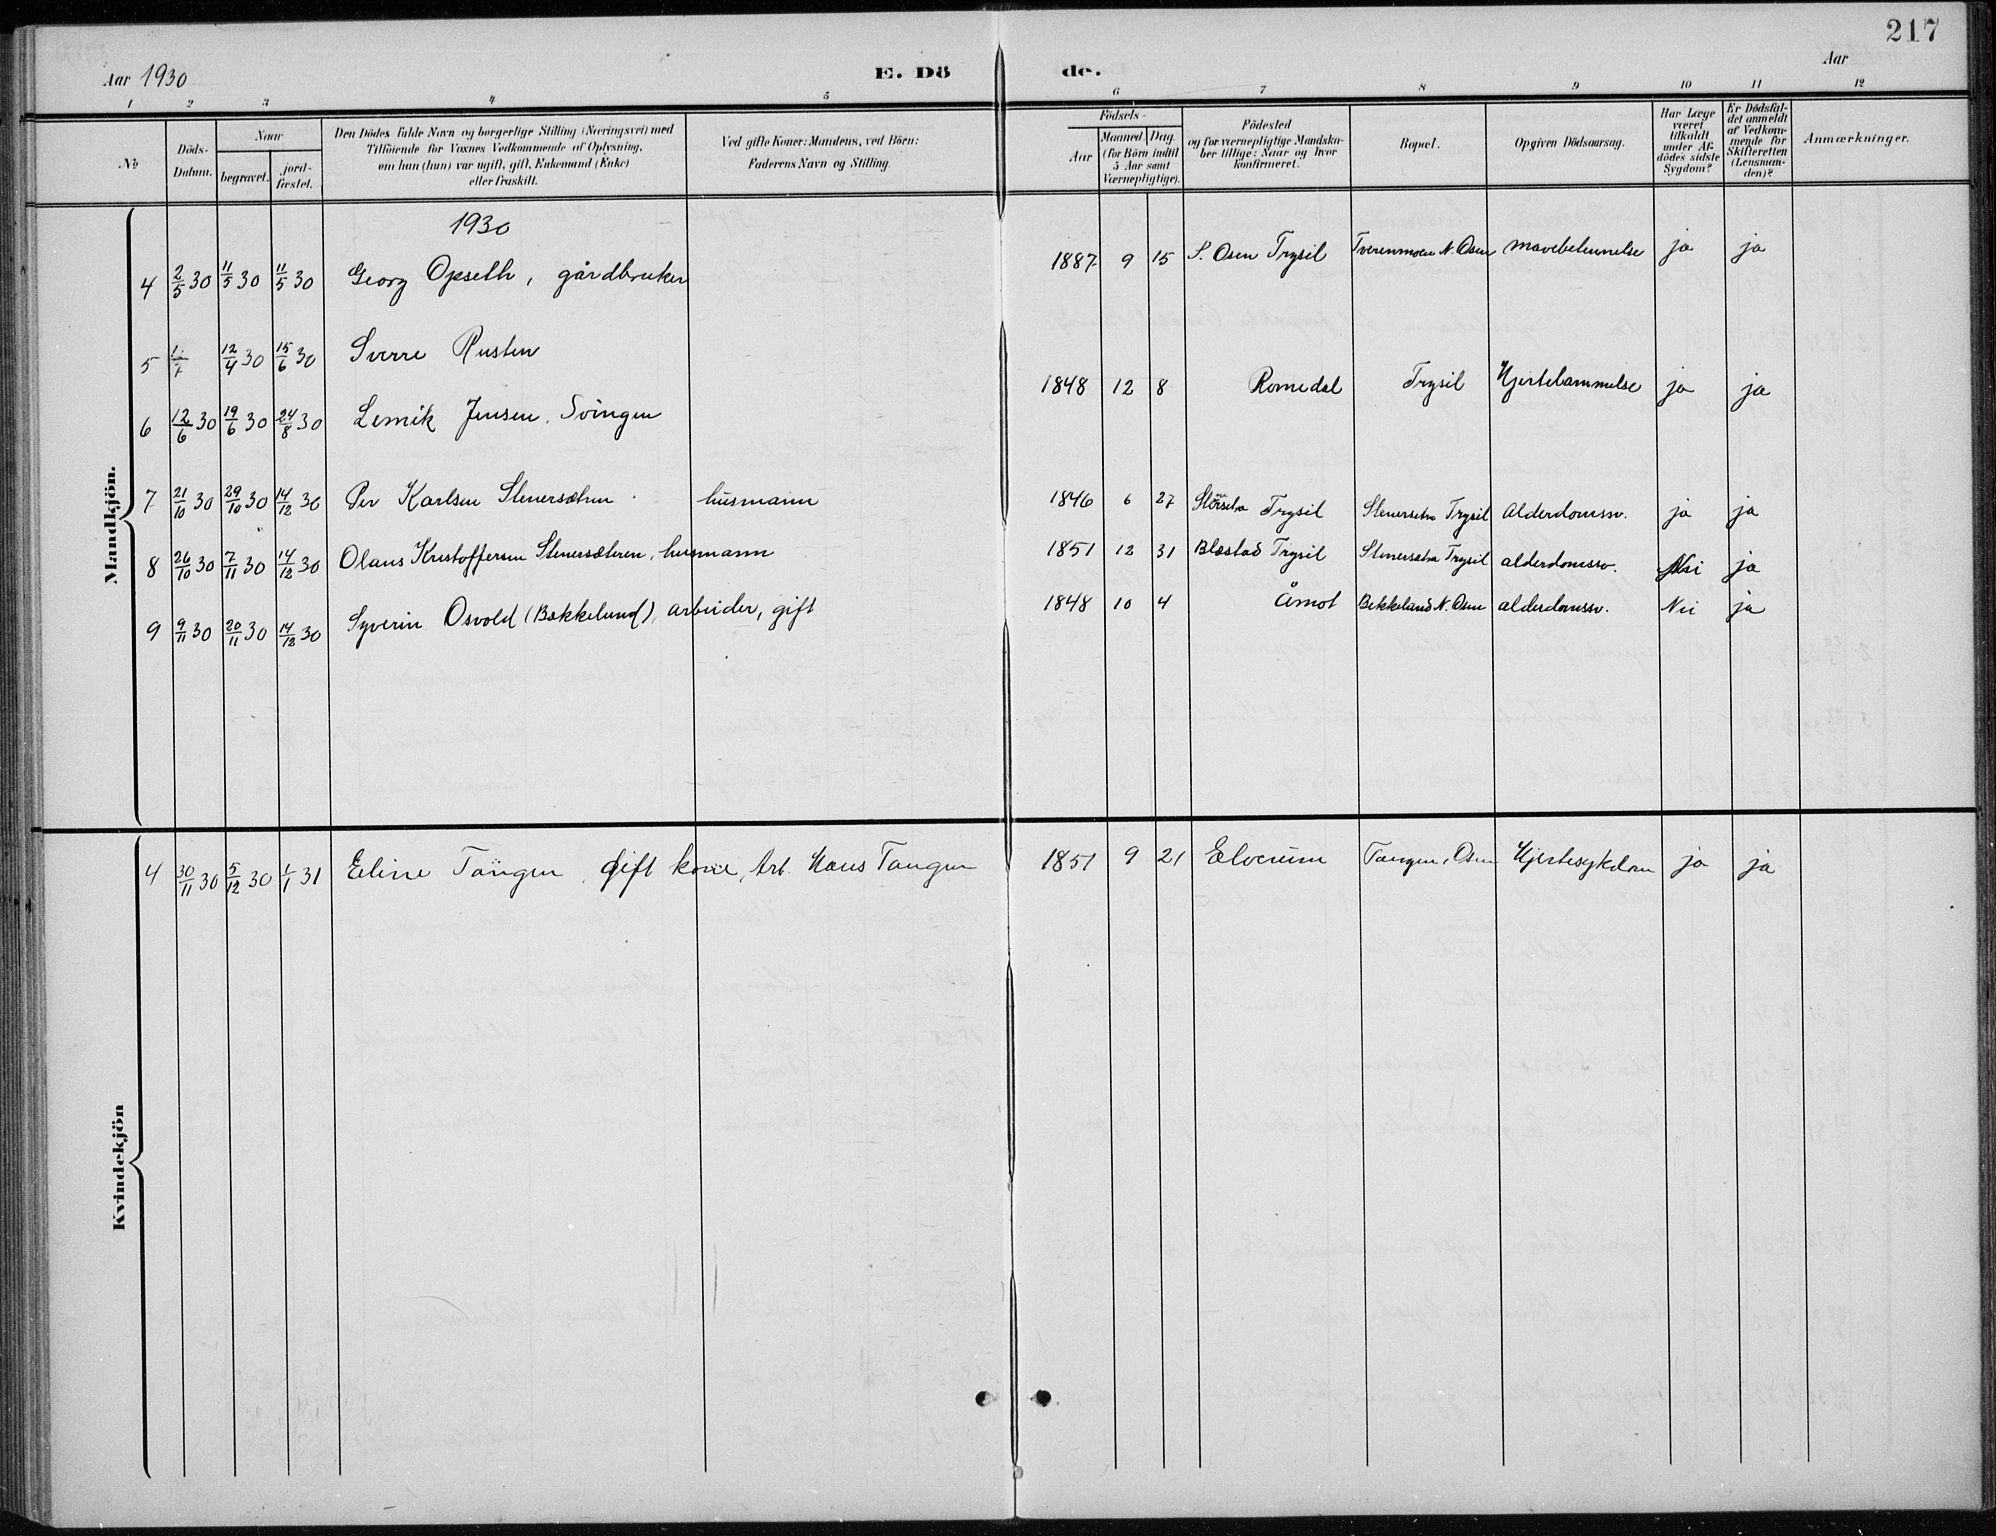 217
Aar 1930 E. Dö de. Aar
1 2 3 4 5 6 7 8 9 10 11 12
№
Döds-Datum.
Naar
begravet.
jord-fæstet.
Den Dödes fulde Navn og borgerlige Stilling (Næringsvei) med
Tilföiende for Voxnes Vedkommende af Oplysning,
om han (hun) var ugift, gift, Enkemand (Enke)
eller fraskilt.
Ved gifte Koner: Mandens, ved Börn:
Faderens Navn og Stilling.
Födsels-
Aar
Maaned. Dag.
(for Börn indtil
5 Aar samt
Værnepligtige).
Födested
og for værnepligtige Mandska-
ber tillige: Naar og hvor
konfirmeret.
Bopæl.
Opgiven Dödsaarsag.
Har Læge
været
tilkaldt
under Af-
dödes sidste
Sygdom?
Er Dödsfal-
det anmeldt
af Vedkom-
mende for
Skifteretten
(Lensman-
den)?
Anmærkninger.
Mandkjön.
1930
4 2/5 30 11/5 30 11/5 30 Georg Opseth, gårdbruker 1887 9 15 S. Osen Trysil Tverenmoen N. Osen mavebetennelse ja ja
5 12/4 30 15/6 30 Sverre Rusten
6 12/6 30 19/6 30 24/8 30 Lemik Jensen Svingen 1848 12 8 Romedal Trysil Hjertelammelse ja ja
7 21/10 30 29/10 30 14/12 30 Per Karlsen Stenersætren husmann 1846 6 27 Trysil Stenersetra Trysil Alderdomssv. ja ja
8 26/10 30 7/11 30 14/12 30 Olaus Kristoffersen Stenersæteren, husmann 1851 12 31 Blæstad Trysil Stenersætra Trysil alderdomssv. Nei ja
9 9/11 30 20/11 30 14/12 30 Syverin Osvold (Bækkelund), arbeider, gift 1848 10 4 Åmot Bekkeland N. Osen alderdomssv. Nei ja
Kvindekjön
4 30/11 30 5/12 30 1/1 31 Eline Tangen, Gift kone, Arb. Hans Tangen 1851 9 21 Elverum Tangen, Osen Hjertesykdom ja ja